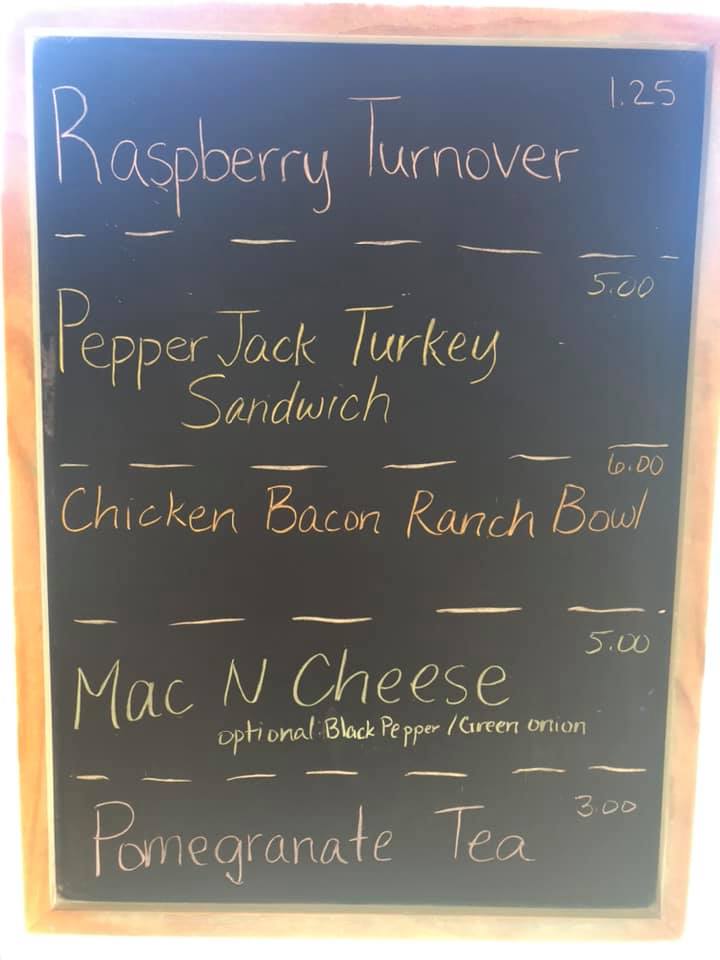 1.25
Raspberry Turnover
5.00
Pepper Jack Turkey
Sandwich
6.00
Chicken Bacon Ranch Bowl
5.00
Mac N Cheese
optional: Black Pepper / Green onion
3.00
Pomegranate Tea